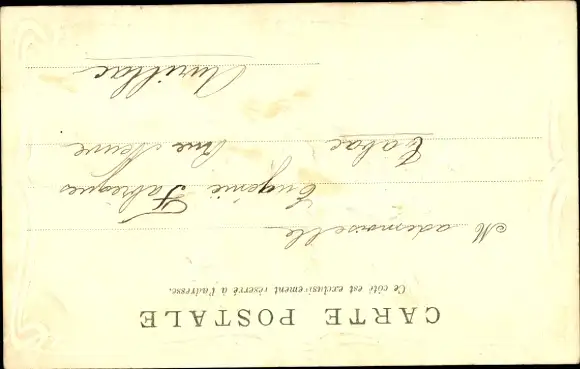 CARTE POSTALE
Ce côté est exclusivement réservé à l'adresse.
Mademoiselle
Eugénie Fabrègues
Tabac Rue Neuve
Aurillac